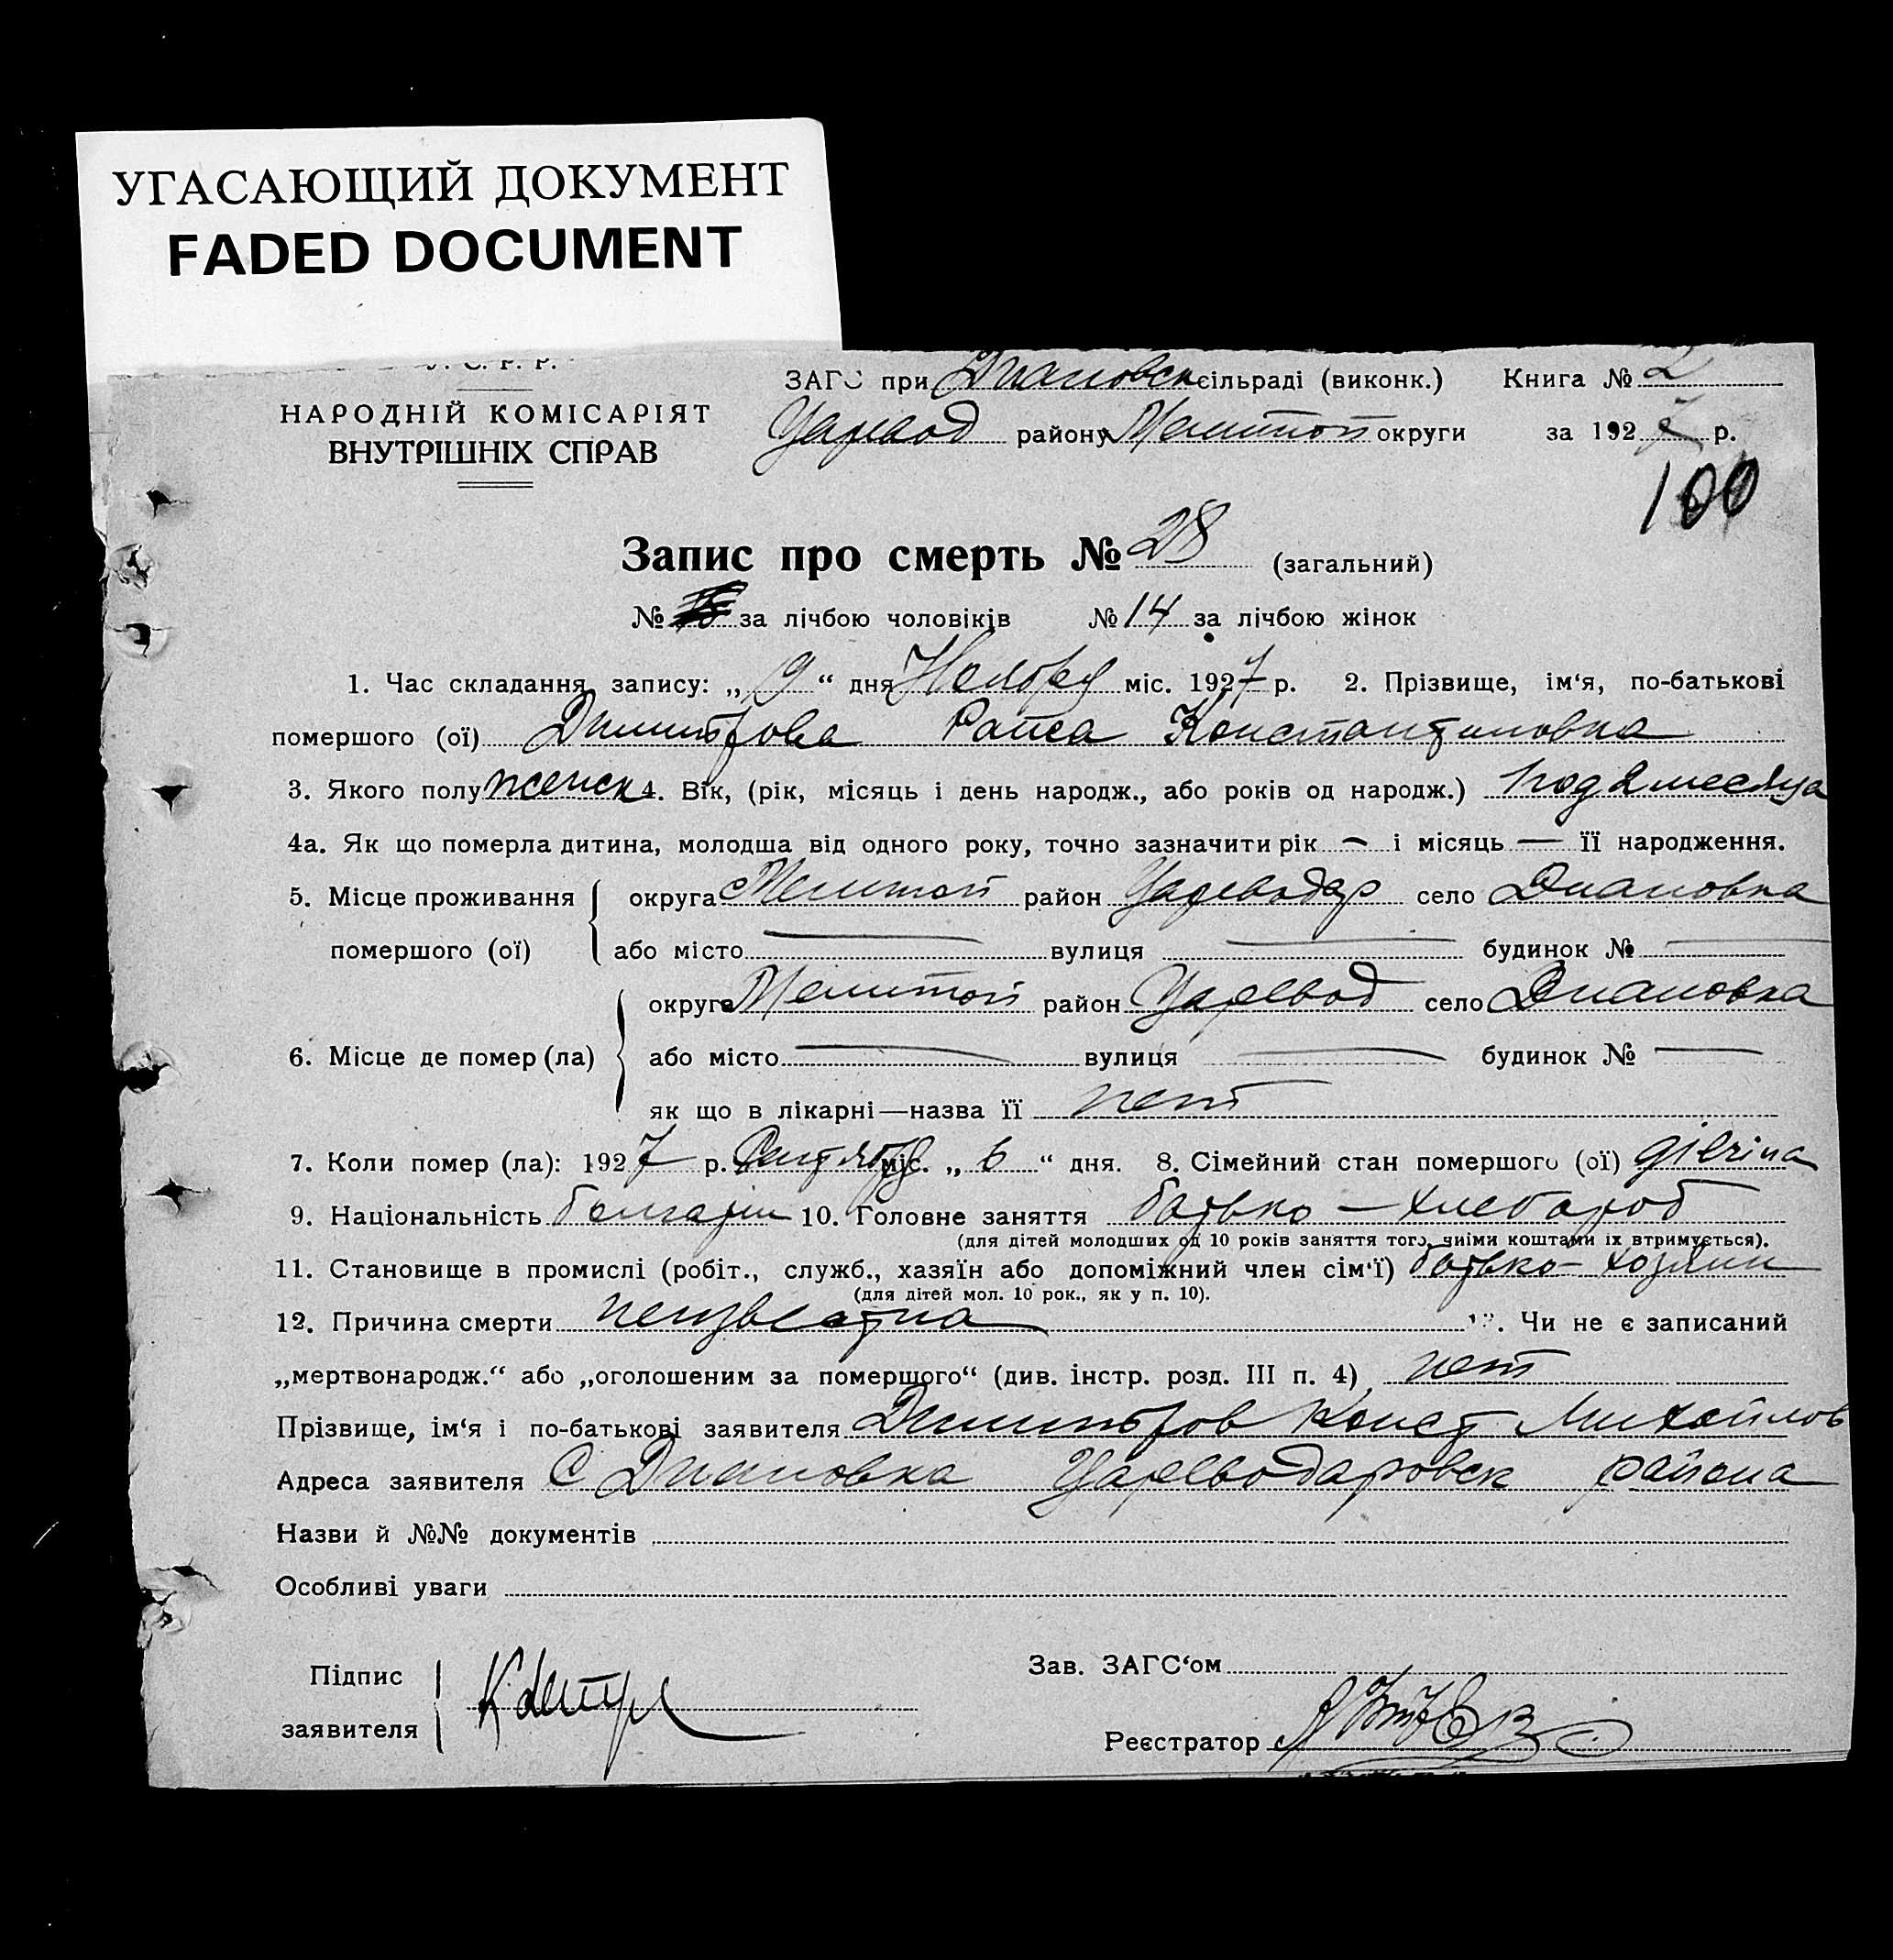 УГАСАЮЩИЙ ДОКУМЕНТ
FADED DOCUMENT
У. С. Р. Р.
НАРОДНІЙ КОМІСАРІЯТ
ВНУТРІШНІХ СПРАВ
ЗАГС при Диановск сільраді (виконк.) Книга № 2
Царевод району Мелитоп округи за 1927 р.
100
Запис про смерть № 28 (загальний)
№ за лічбою чоловіків № 14 за лічбою жінок
1. Час складання запису: „ 9 “ дня Ноября міс. 1927 р. 2. Прізвище, ім‘я, по-батькові
помершого (ої) Димитрова Раиса Константиновна
3. Якого полу женск 4. Вік, (рік, місяць і день народж., або років од народж.) 1 год 2 месяца
4а. Як що померла дитина, молодша від одного року, точно зазначити рік — і місяць — її народження.
5. Місце проживання округа Мелитоп район Цареводар село Диановка
помершого (ої) або місто — вулиця — будинок № —
округа Мелитоп район Царевод село Диановка
6. Місце де помер (ла) або місто — вулиця — будинок № —
як що в лікарні—назва її нет
7. Коли помер (ла): 1927 р. міс. „ 6 “ дня. 8. Сімейний стан помершого (ої) дівчина
9. Національність болгарін 10. Головне заняття батько — хлебороб
(для дітей молодших од 10 років заняття того, чиіми коштами їх втримується).
11. Становище в промислі (робіт., служб., хазяїн або допоміжний член сім‘ї) батько — хозяин
(для дітей мол. 10 рок., як у п. 10).
12. Причина смерти неизвестна 13. Чи не є записаний
„мертвонародж.“ або „оголошеним за померщого“ (див. інстр. розд. III п. 4) нет
Прізвище, ім‘я і по-батькові заявителя Димитров Конст Михайлов
Адреса заявителя С Диановка Цареводаровск района
Назви й №№ документів
Особливі уваги
Підпис
заявителя
Зав. ЗАГС‘ом
Реєстратор